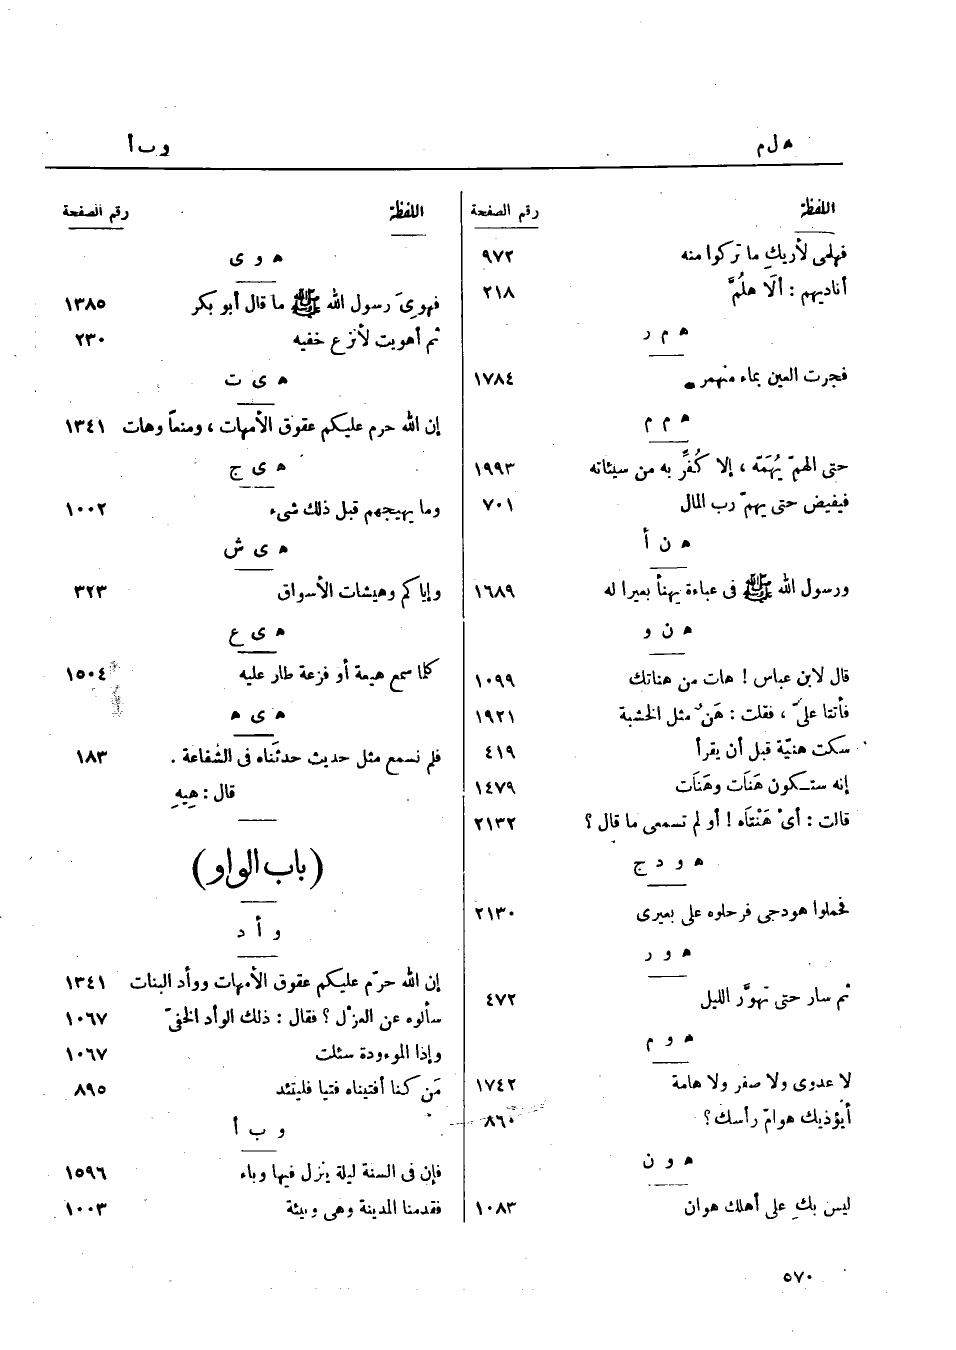 ه ل م
و ب أ
اللفظة
رقم الصفحة
فهلمى لأريكِ ما تركوا منه ٩٧٢
أناديهم : ألَا هلُمَّ ٢١٨
ه م ر
فجرت العين بماء منهمر ١٧٨٤
ه م م
حتى الهمّ يُهَمّه ، إلا كُفِّر به من سيئاته ١٩٩٣
فيفيض حتى يهمّ رب المال ٧٠١
ه ن أ
ورسول الله ﷺ فى عباءة يهنأ بعيرا له ١٦٨٩
ه ن و
قال لابن عباس ! هات من هناتك ١٠٩٩
فأتتا علىّ ، فقلت : هَنٌ مثل الخشبة ١٩٢١
سكت هنيّة قبل أن يقرأ ٤١٩
إنه ستكون هَنَات وهَنَات ١٤٧٩
قالت : أىْ هَنْتَاه ! أو لم تسمعى ما قال ؟ ٢١٣٢
ه و د ج
فحملوا هودجى فرحلوه على بعيرى ٢١٣٠
ه و ر
ثم سار حتى تهوَّر الليل ٤٧٢
ه و م
لا عدوى ولا صفر ولا هامة ١٧٤٢
أيُؤذيك هوامّ رأسك ؟ ٨٦٠
ه و ن
ليس بكِ على أهلك هوان ١٠٨٣
اللفظة
رقم الصفحة
ه و ى
فهوِىَ رسول الله ﷺ ما قال أبو بكر ١٣٨٥
ثم أهويت لأنزع خفيه ٢٣٠
ه ى ت
إن الله حرم عليكم عقوق الأمهات ، ومنعاً وهات ١٣٤١
ه ى ج
وما يهيجهم قبل ذلك شىء ١٠٠٢
ه ى ش
وإياكم وهيشات الأسواق ٣٢٣
ه ى ع
كلما سمع هيعة أو فزعة طار عليه ١٥٠٤
ه ى ه
فلم نسمع مثل حديث حدثَناه فى الشفاعة . ١٨٣
قال : هِيهِ
(باب الواو)
و أ د
إن الله حرّم عليكم عقوق الأمهات ووأد البنات ١٣٤١
سألوه عن العزل ؟ فقال : ذلك الوأد الخفىّ ١٠٦٧
وإذا الموءودة سئلت ١٠٦٧
مَن كنا أفتيناه فتيا فليتئد ٨٩٥
و ب أ
فإن فى السنة ليلة ينزل فيها وباء ١٥٩٦
فقدمنا المدينة وهى وبيئة ١٠٠٣
٥٧٠